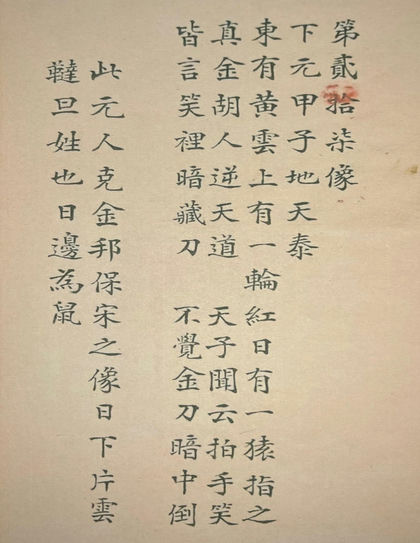 第貳拾柒像
下元甲子地天泰
東有黃雲上有一輪紅日有一猿指之
真金胡人逆天道 天子聞云拍手笑
皆言笑裡暗藏刀 不覺金刀暗中倒
此元人克金邦保宋之像日下片雲
韃旦姓也日邊為鼠